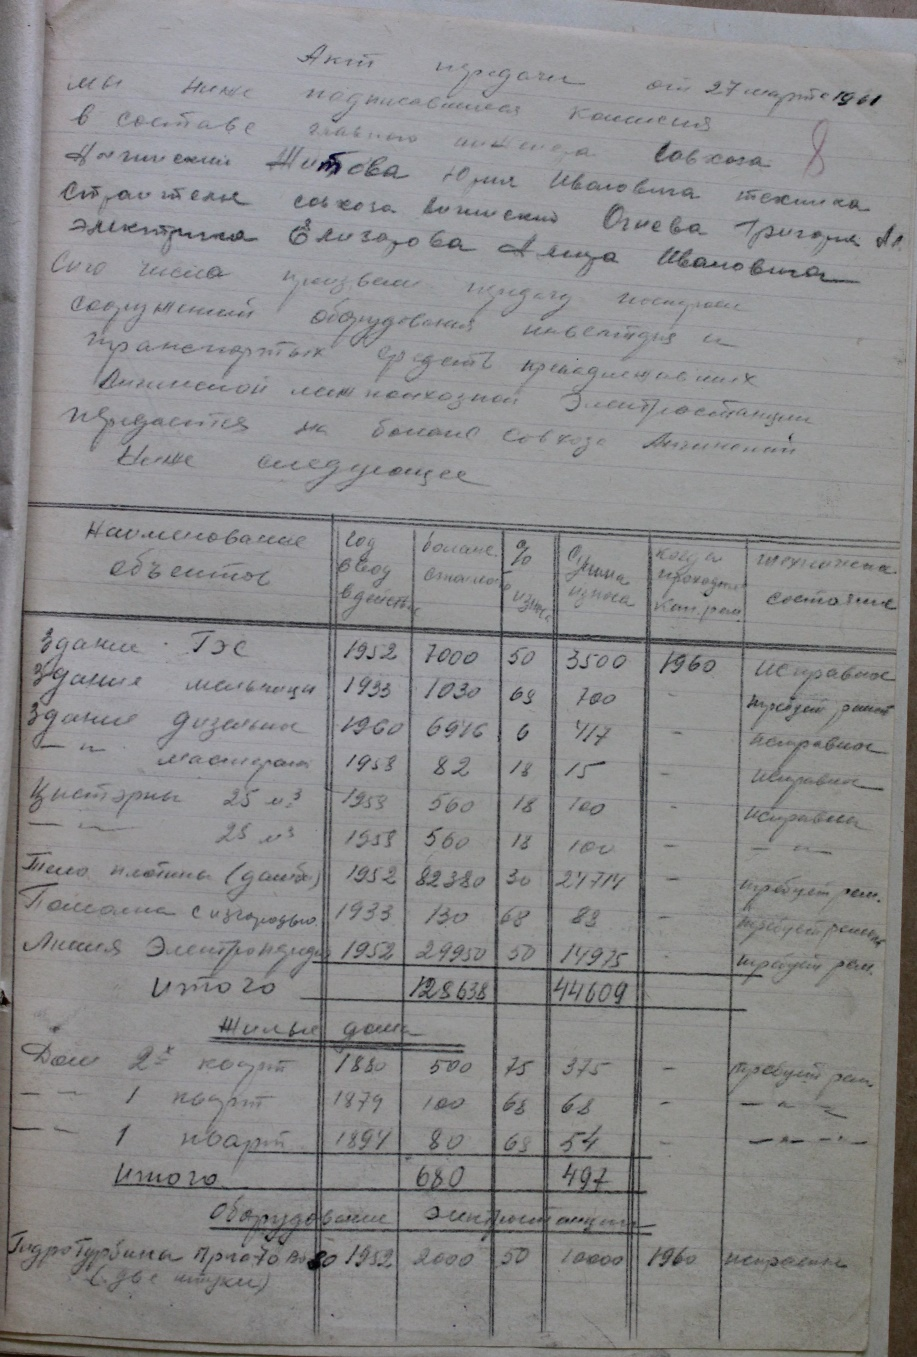 Акт передачи от 27 марта 1961
8
мы ниже подписавшиеся комиссия
в составе главного инженера совхоза
Житова Юрия Ивановича техника
строителя совхоза Огнева Григория
электрика Елизарова Ивановича
Сего числа произвели передачу построек
сооружений оборудования инвентаря и
транспортных средств принадлежавших
межколхозной Электростанции
передается на баланс совхоза
Ниже следующее
Наименование объектов год ввод в действ баланс стоимо % износ Сумма износа когда проходил кап.рем техническа состояние
Здание ГЭС 1952 7000 50 3500 1960 исправное
Здание мельницы 1933 1030 68 700 - требует ремонт
Здание дизельное 1960 6946 6 417 - исправное
— " — мастерская 1953 82 18 15 - исправное
Цистерны 25 м³ 1953 560 18 100 - исправны
— " — 25 м³ 1953 560 18 100 - — " —
Тело плотины (дамба) 1952 82380 30 24714 - требует рем.
с изгородью 1933 130 68 88 - требует ремонт
Линия Электропередач 1952 29950 50 14975 - требует рем.
Итого 128638 44609
Жилые дома
Дом 2х кварт 1880 500 75 375 - требует рем
— — 1 кварт 1879 100 68 68 - — " —
— — 1 кварт 1894 80 68 54 - — " —
Итого 680 497
Оборудование электростанции
Гидротурбина 1952 2000 50 10000 1960 исправны
(две штуки)